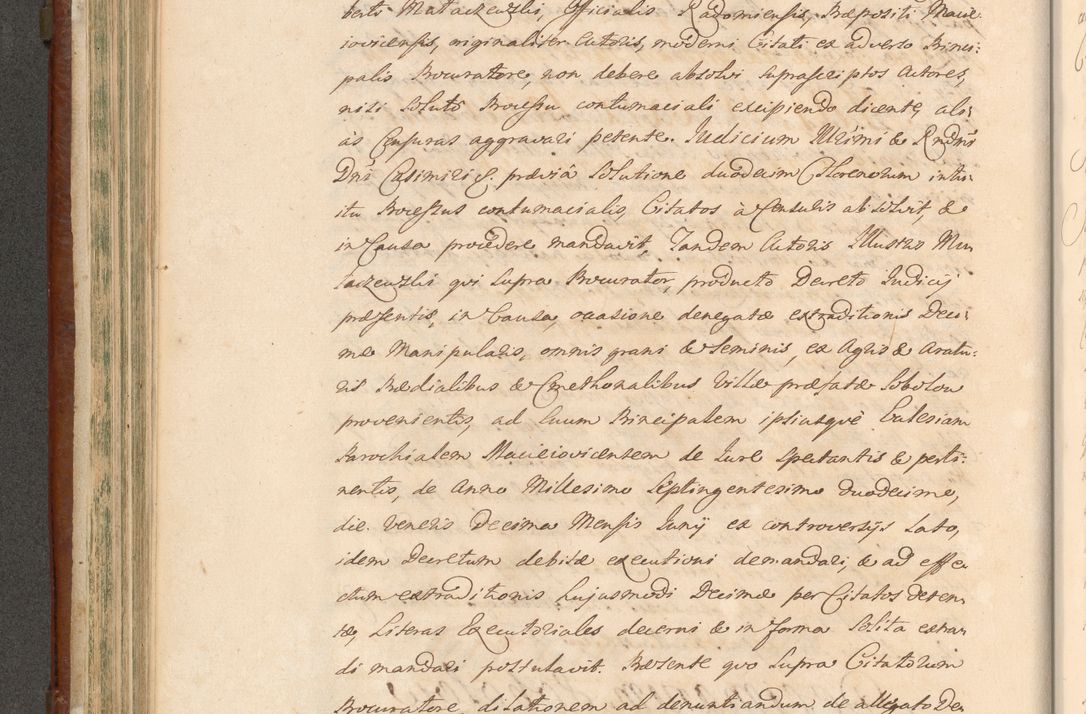 berti Mataczewski, Officialis Radomiensis, Præpositi Macie
ioviciensis, originaliter Actoris, moderni Citati ex adverso Princi:
palis Procuratore, non debere absolvi suprascriptos Actores,
nisi soluto Processu contumaciali excipiendo dicente, ali:
às Censuras aggravari petente. Judicium Illrimi & Rndmi
Dni Casimiri &. præviâ solutione duodecim Florenorum intu:
itu Processus contumacialis, Citatos à Censuris absolvit, &
in Causa procedere mandavit, Tandem Actoris Illustris Ma,
taczewski qui supra Procurator, producto Decreto Judicij
præsentis, in Causa, occasione denegatæ extraditionis Deci:
mæ Manipularis, omnis grani & seminis, ex Agris & Aratu:
ris Prædialibus & Cmethonalibus Villæ præfatæ Sobolew
provenientis, ad suum Principalem ipsiusque Ecclesiam
Parochialem Macieiovicensem de Jure spectantis & perti:
nentis, de Anno Millesimo Septingentesimo duodecimo,
die Veneris Decima Mensis Junij ex controversijs lato,
idem Decretum debitæ executioni demandari, & ad effe,
ctum extraditionis hujusmodi Decimæ per Citatos deten,
tæ, Literas Executoriales decerni & in forma solita extra,
di mandari postulavit. Præsente quo supra Citatorum
Procuratore, dilationem ad denuntiandum de allegato De,